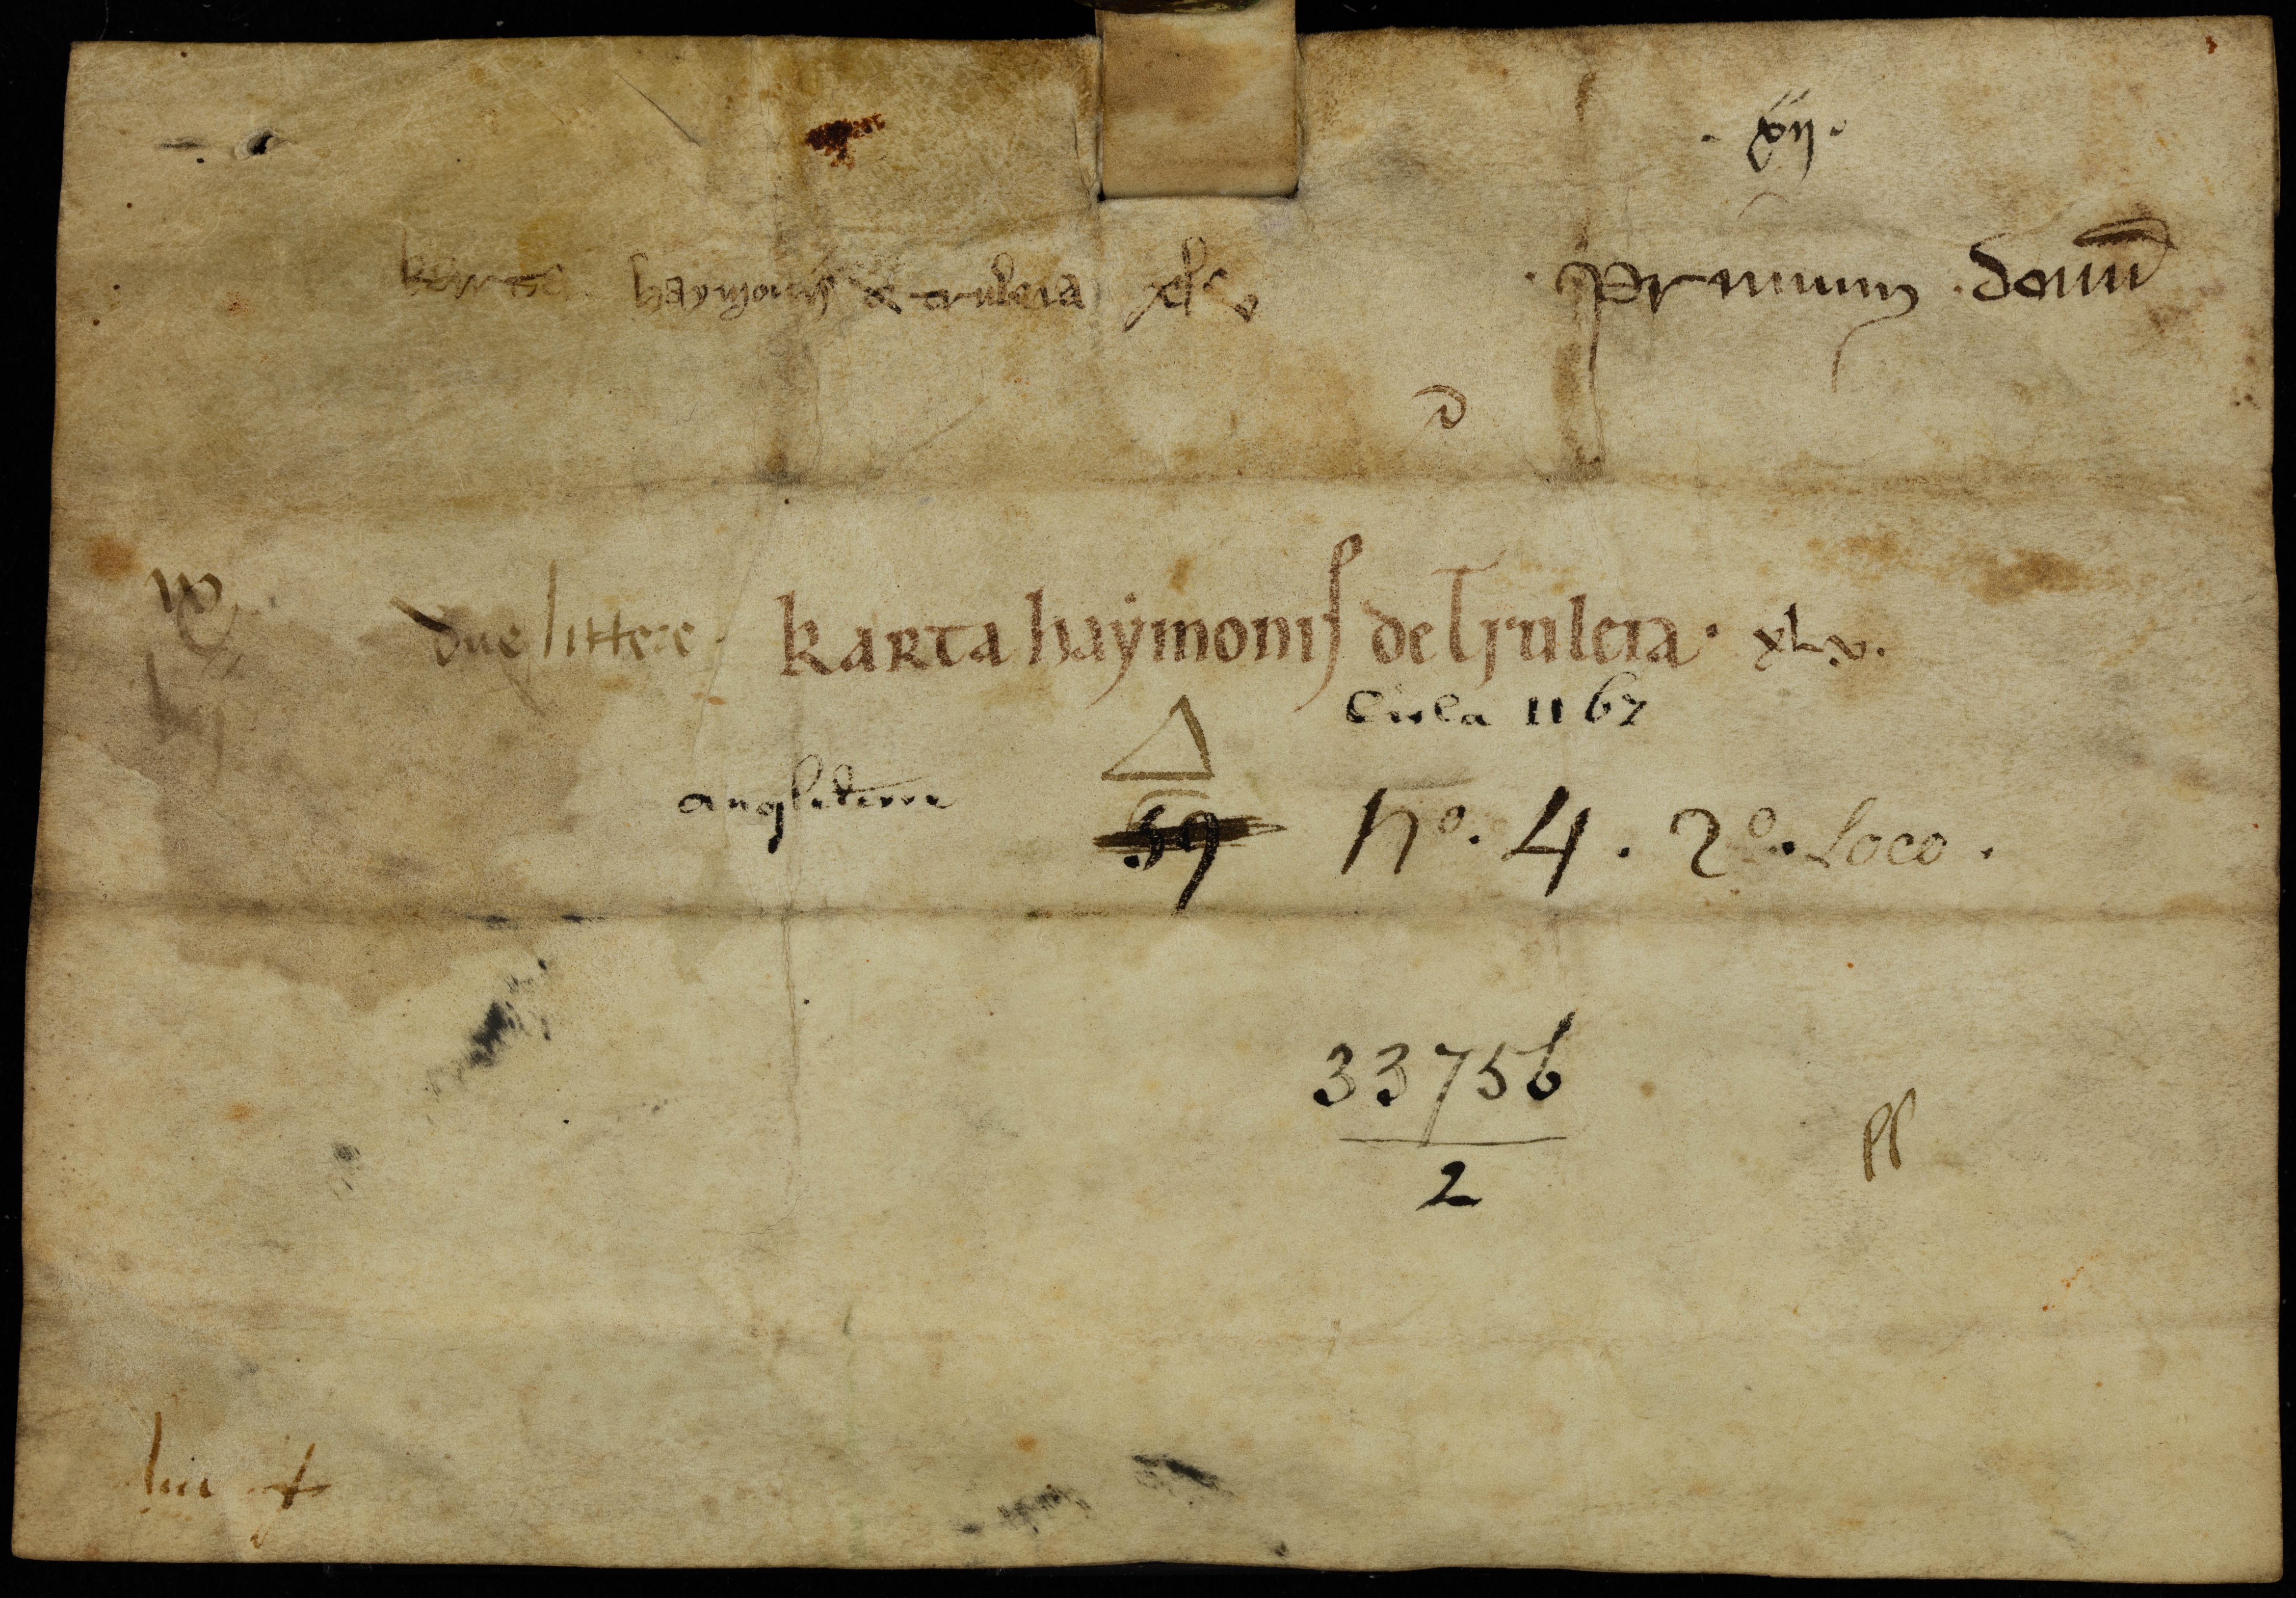 . xij .
haymonis de truleia xlv
. primum . donum
d
due littere . karta haymonis de truleia . xl.v.
Circa 1167
angleterre
59 n°. 4 . 2°. Loco .
33756
2